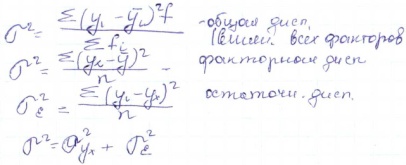 σ² = Σ(y₁ - ȳ₁)² f / Σ fᵢ - общая дисп.
всех факторов
σ² = Σ(yₓ - ȳ)² / n - факторная дисп
σ²ε = Σ(y₁ - yₓ)² / n остаточн. дисп.
σ² = σ²yₓ + σ²ε